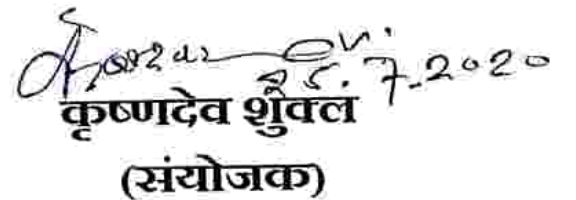 25.7.2020
कृष्णदेव शुक्ल
(संयोजक)